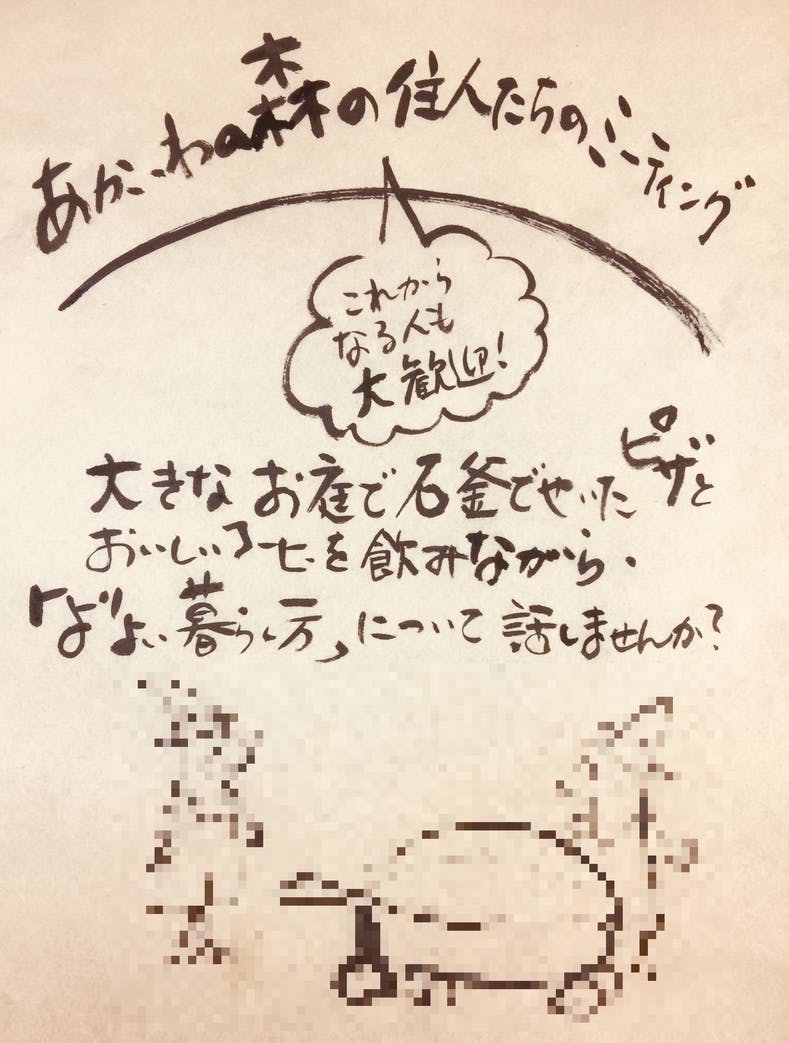 あかいわの森の住人たちのミーティング
これから
なる人も
大歓迎!
大きなお庭で石釜でやいたピザと
おいしいコーヒーを飲みながら、
「ど"よい暮らし方」について話しませんか?